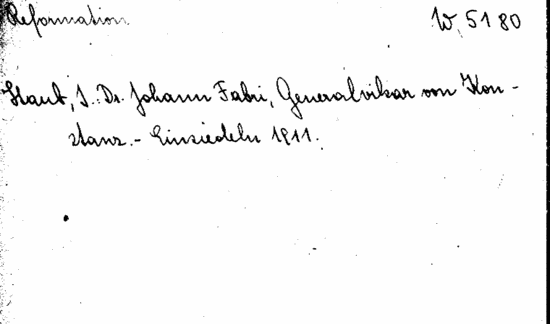 Reformation
W, 5180
Staub, I.: Dr. Johann Fabri, Generalvikar von Kon-
stanz.- Einsiedeln 1911.